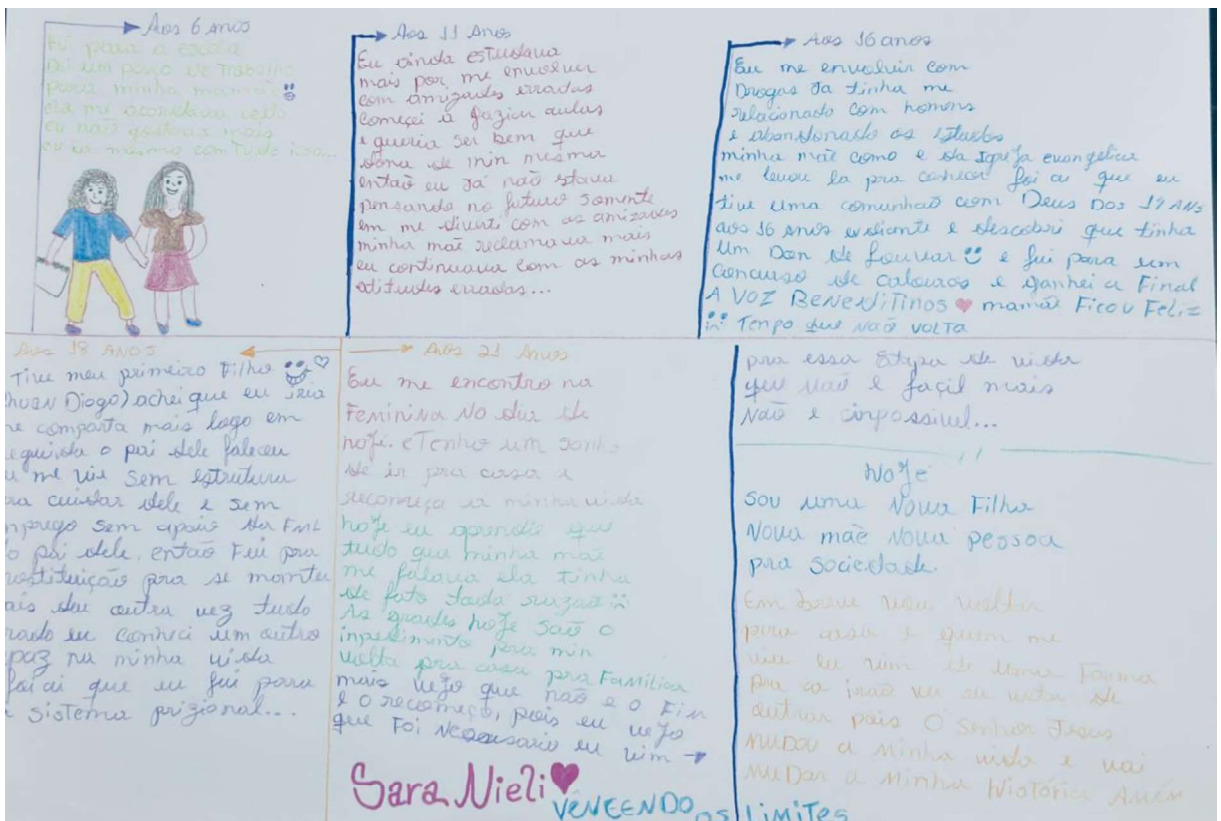 Aos 6 anos
fui para a escola
dei um pouco de Trabalho
para minha mamãe
ela me acordava cedo
eu não gostava mais
eu ia mesmo com Tudo isso...
Aos 11 Anos
Eu ainda estudava
mais por me envolver
com amizades erradas
começei a gaziar aulas
e queria ser bem que
dona de min mesma
então eu Já não estava
pensando no futuro somente
em me diverti com as amizades
minha mãe reclamava mais
eu continuava com as minhas
atitudes erradas...
Aos 16 anos
Eu me envoluir com
Drogas Ja tinha me
relacionado com homens
e abandonado os estudos
minha mãe como e da Igreja evangélica
me levou la pra conhecer foi ai que eu
tive uma comunhão com Deus Dos
aos 16 Anos e diante e descobri que tinha
um Don de Louvar e fui para um
Concurso de calouros e ganhei a Final
A VOZ BENEDITINOS mamãe Ficou Feliz
Tenpo que não VOLTA
Aos 18 ANOS
Tive meu primeiro Filho
Diogo) achei que eu iria
comporta mais logo em
o pai dele faleceu
me vie sem estrutura
cuidar dele e sem
sem apoio da
pai dele, então Fui pra
pra se
outra vez tudo
eu conheci um outro
na minha vida
foi ai que eu fui para
sistema prizional...
Aos 21 Anos
Eu me encontro na
Feminina No dia de
hoje. e Tenho um sonho
de ir pra casa e
recomeça a minha vida
hoje eu aprendi que
tudo que minha mãe
me falava ela tinha
de fato toda razão
As grades hoje são o
inpedimento pra min
volta pra casa pra Família
mais vejo que não e o Fim
e o recomeço, pois eu vejo
que Foi Necessario eu vim
pra essa Etapa de vida
que não é façil mais
Não e inpossivel...
Hoje
Sou uma Nova Filha
Nova mãe Nova pessoa
pra Sociedade.
Em breve vou voltar
para casa e quem me
viu eu vim de uma Forma
pra ca irão ver eu volta de
outra pois O Senhor Jesus
MUDOU a Minha vida e vai
MUDAR a Minha História Amém
Sara Nieli
VENCENDO os LIMITES